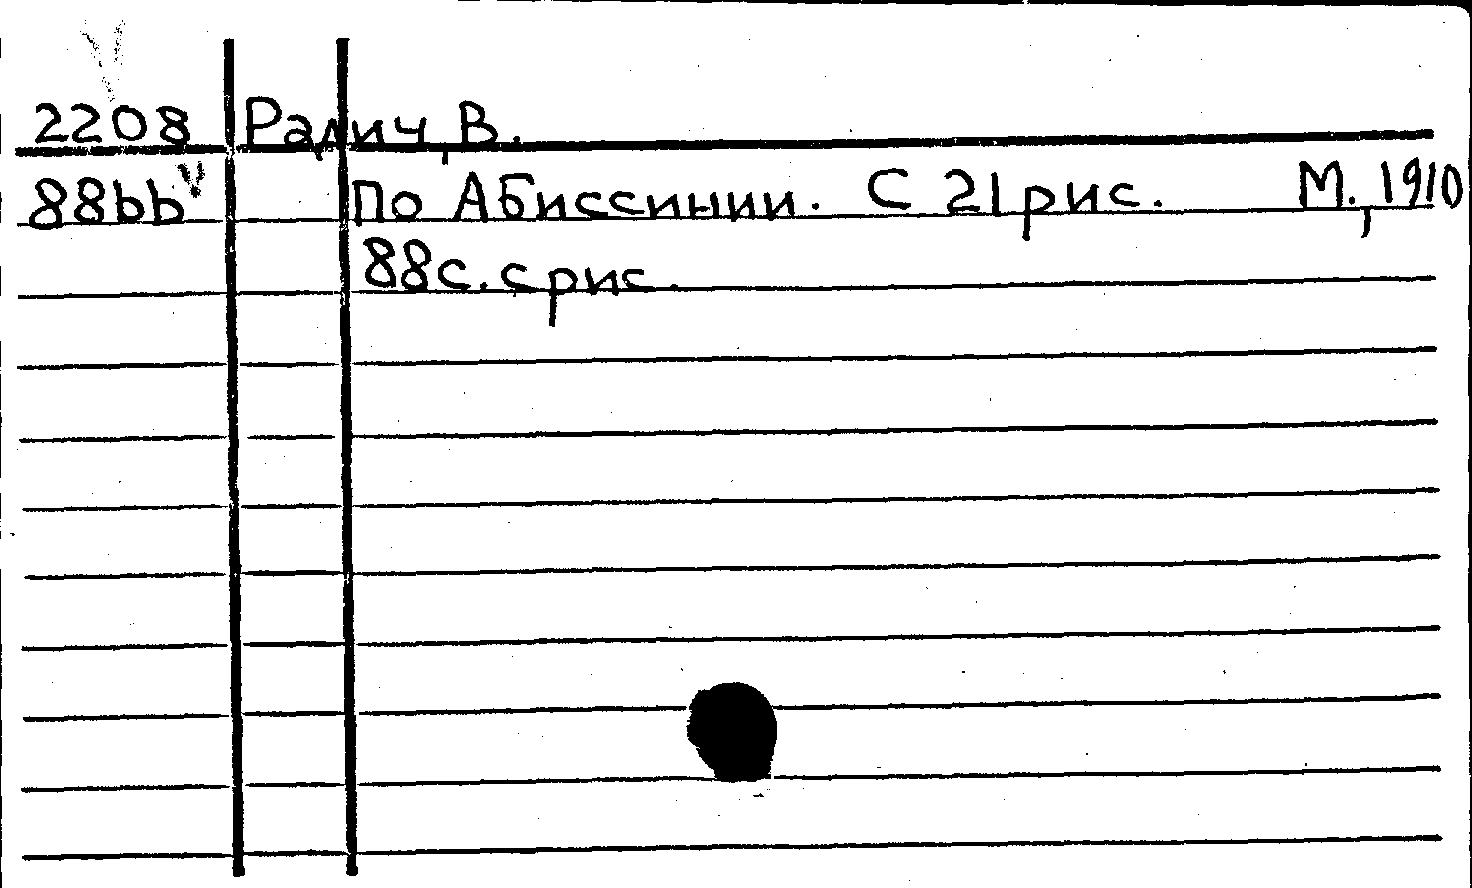 2208 Радич, В.
88bb По Абиссинии. С 21 рис. М., 1910
88с. с рис.